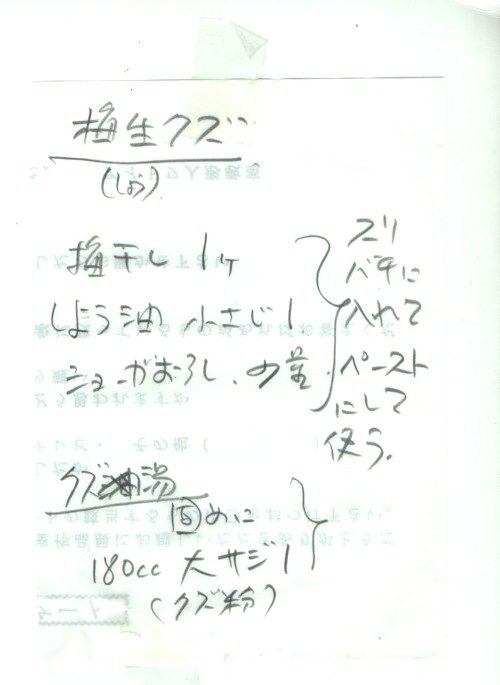 梅生クズ
(しょう)
梅干し 1ヶ
しょう油 小さじ1
ショーがおろし、少量
スリ
バチに
入れて
ペースト
にして
使う。
クズ湯
めに
180cc 大サジ1
(クズ粉)